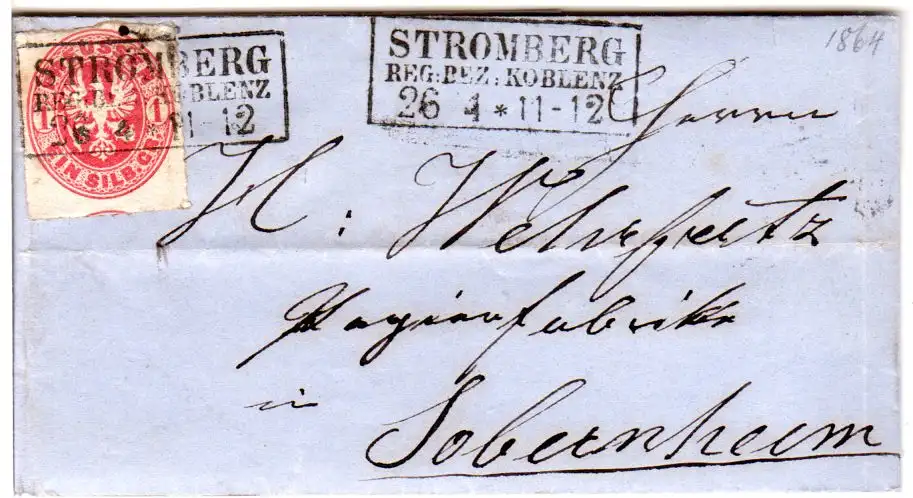 1864
STROMBERG
REG:BEZ:KOBLENZ
26 4 * 11-12
STROMBERG
REG:B OBLENZ
26 4 * 11-12
1 1
EIN SILB.GR.
Herrn
H: Wehrfritz
Papierfabrik
in
Sobernheim